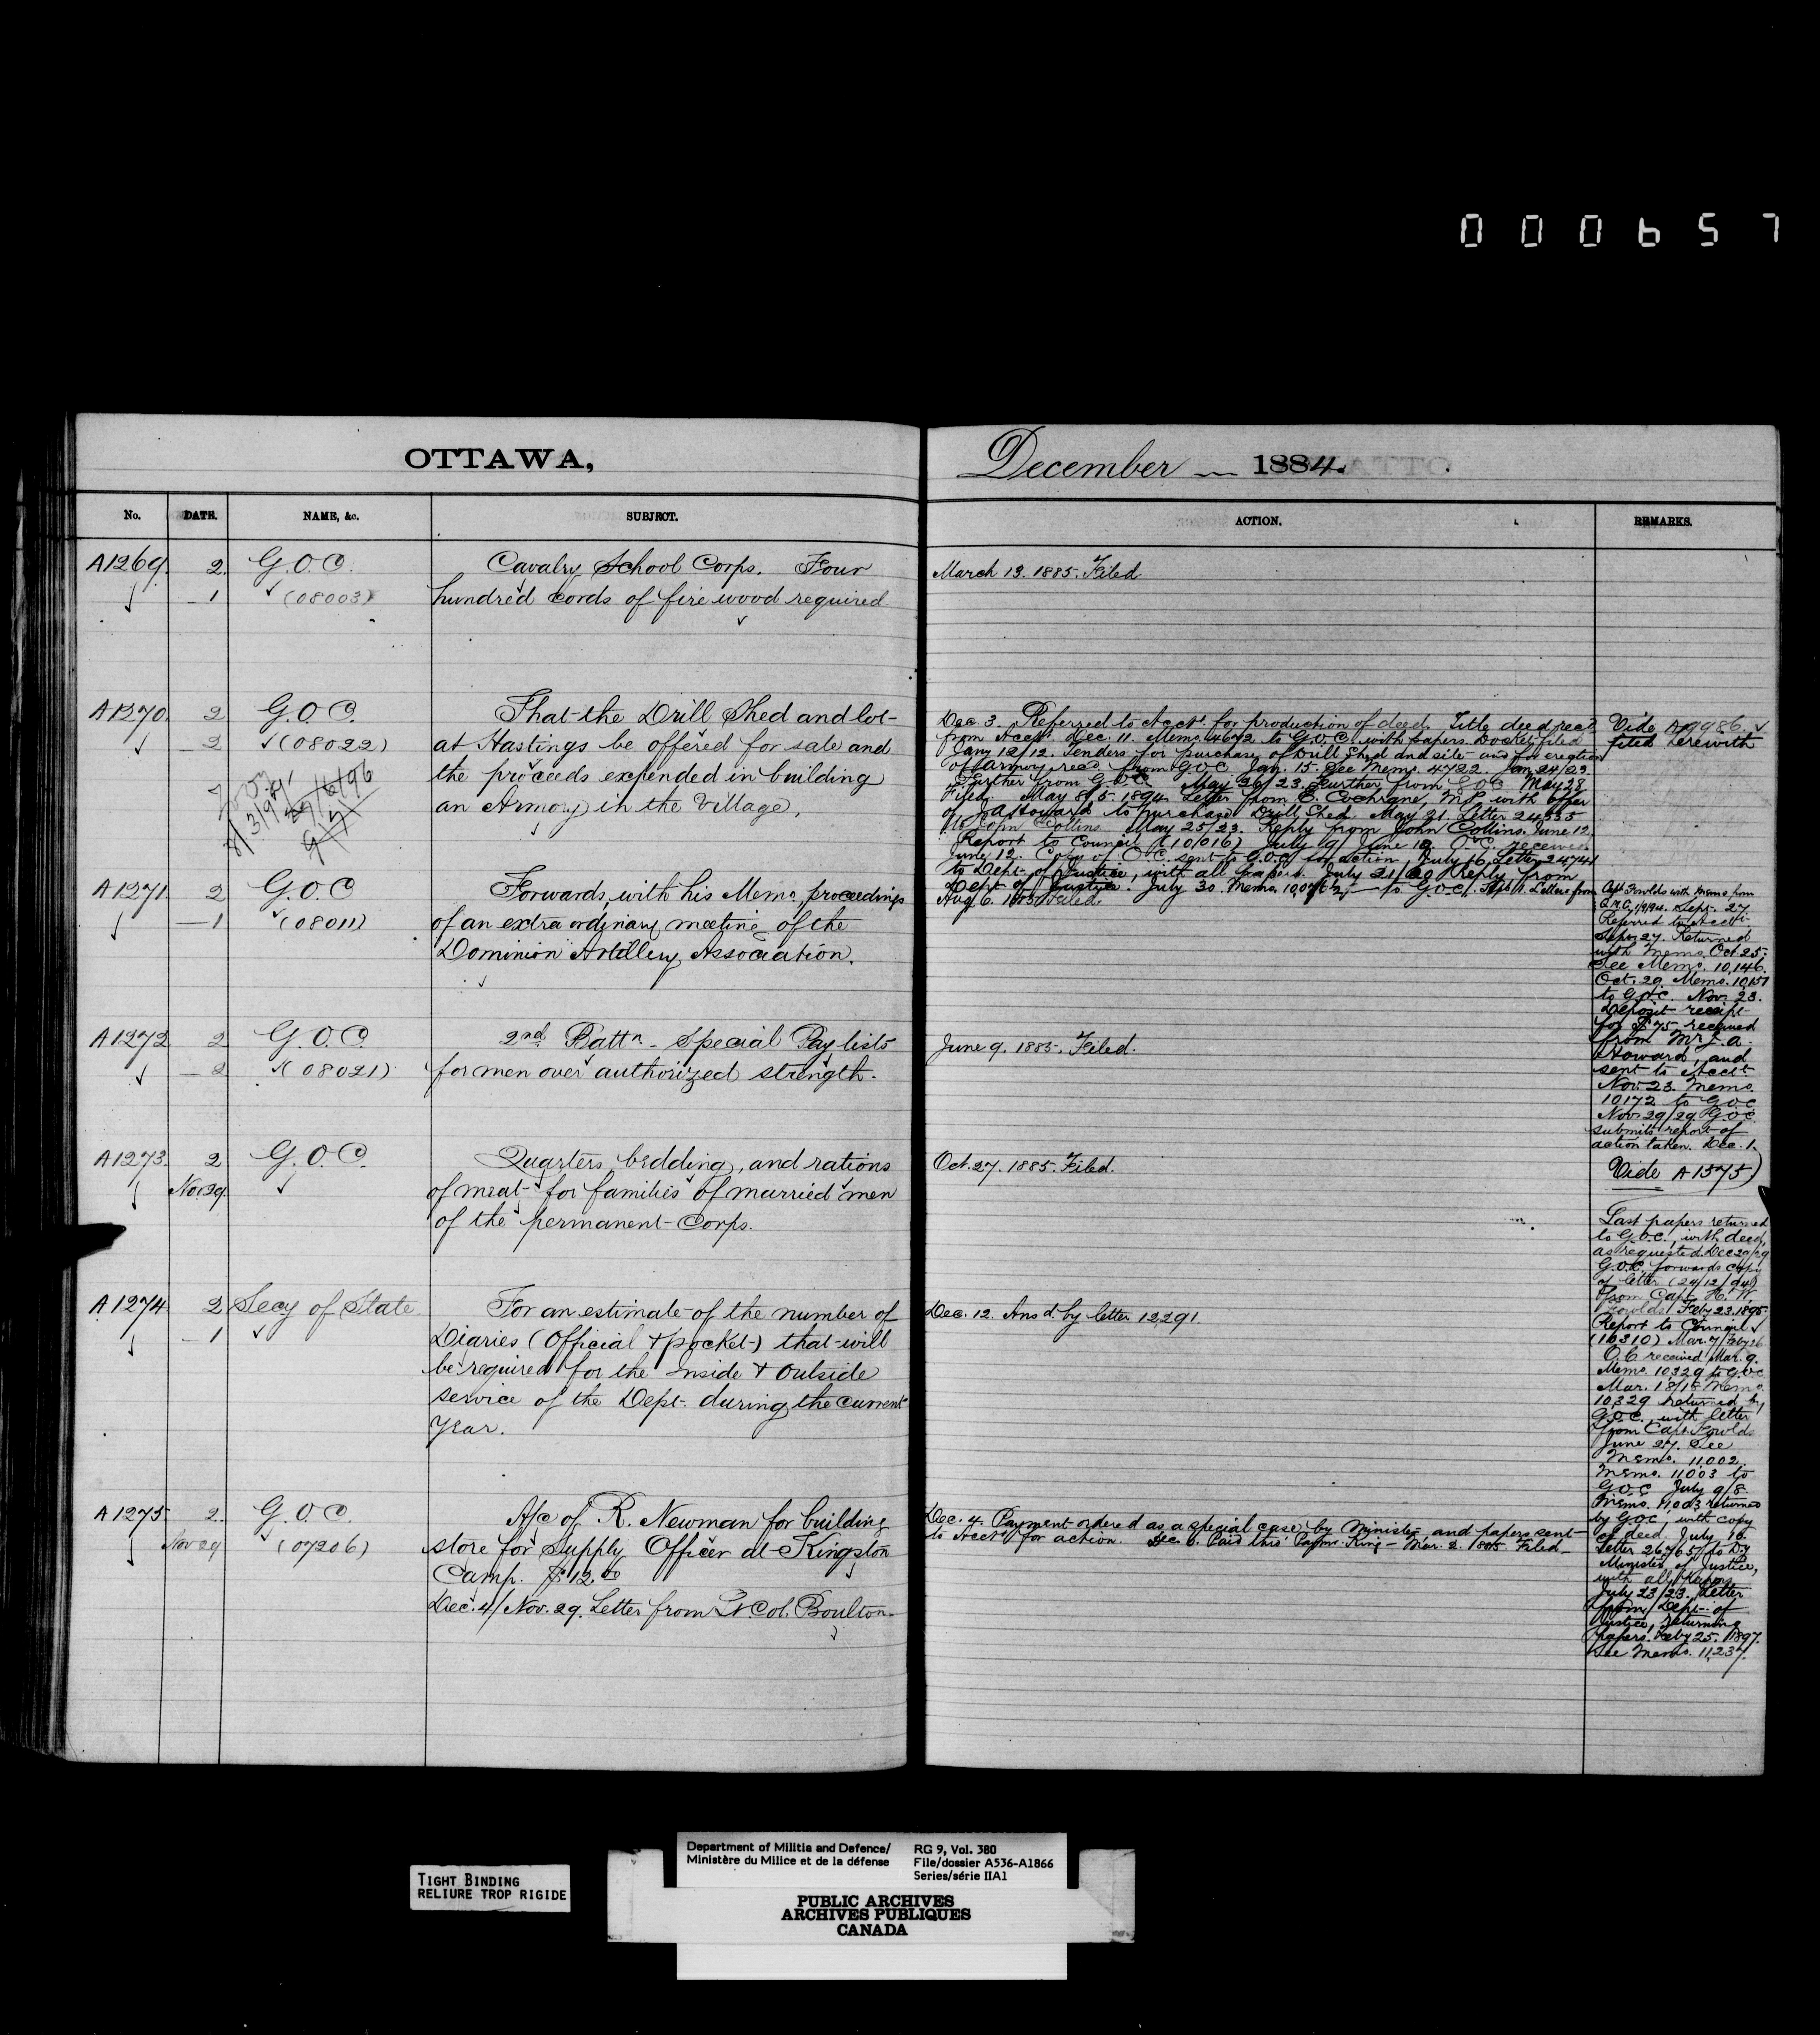 000657
OTTAWA,
December — 1884.
No.
DATE.
NAME, &c.
SUBJECT.
ACTION.
REMARKS.
A1269
2
1
G.O.C.
(08003)
Cavalry School Corps. Four
hundred cords of fire wood required.
March 13. 1885. Filed.
A1270
2
2
G.O.C.
(08022)
That the Drill Shed and lot
at Hastings be offered for sale and
the proceeds expended in building
an Armory in the Village.
Dec 3. Referred to Acct. for production of deed. Title deed recd
from Acct. Dec. 11. Memo. 4672 to G.O.C. with papers. Docket filed
Jany 12/12. Tenders for purchase of Drill Shed and site and for erection
of armory recd. from G.O.C. Jan. 15. See Memo. 4722. Jan 24/23.
Further from G.O.C. May 26/23. Further from G.O.C. May 28
Filed. May 8/5. 1894. Letter from E. Cochrane, M.P. with offer
of J. A. Howard to purchase Drill Shed. May 21. Letter 24535
to John Collins. May 25/23. Reply from John Collins. June 12.
Report to Council (10/016) July 9/ June 10. O.C. received.
June 12. Copy of O.C. sent to G.O.C. for action, July 16. Letter 24741
to Dept. of Justice, with all papers. July 21/20 Reply from
Dept. of Justice. July 30. Memo. to G.O.C. Letters from
Vide A19986
filed herewith
Capt Fowlds with memo from
Sept. 27
Referred to Acct.
Sept. 27. Returned
with Memo. Oct 25.
See Memo. 10,146.
Oct. 29 Memo. 10151
to G.O.C. Nov. 23.
Deposit receipt
for $75 received
from Mr J. A.
Howard, and
sent to Acct.
Nov 23. Memo.
10172 to G.O.C.
Nov 29/29 G.O.C.
submits report of
action taken. Dec. 1.
Vide A1575)
Last papers returned
to G.O.C., with deed,
as requested. Dec 29/29
G.O.C. forwards copy
of letter (24/12/94)
from Capt. H. W.
Fowlds. Feby 23. 1895.
Report to Council
(10310) Mar. 7/Feby 26
O.C. received Mar. 9.
Memo. 10329 to G.O.C.
Mar. 18/18 Memo.
10329 returned by
G.O.C. with letter
from Capt. Fowlds
June 27. See
Memo. 11002.
Memo. 11003 to
G.O.C. July 9/8.
Memo. 11003 returned
by G.O.C., with copy
of deed. July 16.
Letter 26765 to Dy
Minister of Justice,
with all papers
July 23/23. Letter
from Dept. of
Justice, returning
papers. Feby 25. 1897.
See Memo. 11,237.
A1271
2
1
G.O.C.
(08011)
Forwards, with his Memo, proceedings
of an extra ordinary meeting of the
Dominion Artillery Association.
Aug 6. 1885. Filed.
A1272
2
2
G.O.C.
(08021)
2nd Battn - Special Pay lists
for men over authorized strength.
June 9. 1885. Filed.
A1273
2
Nov 29
G.O.C.
Quarters, bedding, and rations
of meat for families of married men
of the permanent Corps.
Oct. 27. 1885. Filed.
A1274
2
1
Secy of State
For an estimate of the number of
Diaries (Official & pocket) that will
be required for the Inside & Outside
service of the Dept. during the current
year.
Dec. 12. Ansd. by letter 12291
A1275
2
Nov 29
G.O.C.
(07206)
A/c of R. Newman for building
store for Supply Officer at Kingston
Camp. $12.00
Dec. 4/Nov. 29. Letter from Lt Col. Boulton.
Dec. 4. Payment ordered as a special case by Minister, and papers sent
to Acct for action. Dec. 6. Paid thro' Paymr. King - Mar. 2. 1885 Filed
TIGHT BINDING
RELIURE TROP RIGIDE
Department of Militia and Defence/
Ministère du Milice et de la défense
RG 9, Vol. 380
File/dossier A536-A1866
Series/série IIA1
PUBLIC ARCHIVES
ARCHIVES PUBLIQUES
CANADA